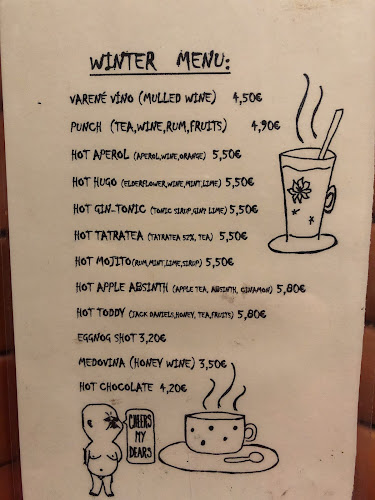 WINTER MENU:
VARENÉ VÍNO (MULLED WINE) 4,50€
PUNCH (TEA,WINE,RUM,FRUITS) 4,90€
HOT APEROL (APEROL,WINE,ORANGE) 5,50€
HOT HUGO (ELDERFLOWER,WINE,MINT,LIME) 5,50€
HOT GIN-TONIC (TONIC SIRUP,GIN? LIME) 5,50€
HOT TATRATEA (TATRATEA 52%, TEA) 5,50€
HOT MOJITO (RUM,MINT,LIME,SIRUP) 5,50€
HOT APPLE ABSINTH (APPLE TEA, ABSINTH, CINAMON) 5,80€
HOT TODDY (JACK DANIELS,HONEY, TEA,FRUITS) 5,80€
EGGNOG SHOT 3,20€
MEDOVINA (HONEY WINE) 3,50€
HOT CHOCOLATE 4,20€
CHEERS
MY
DEARS